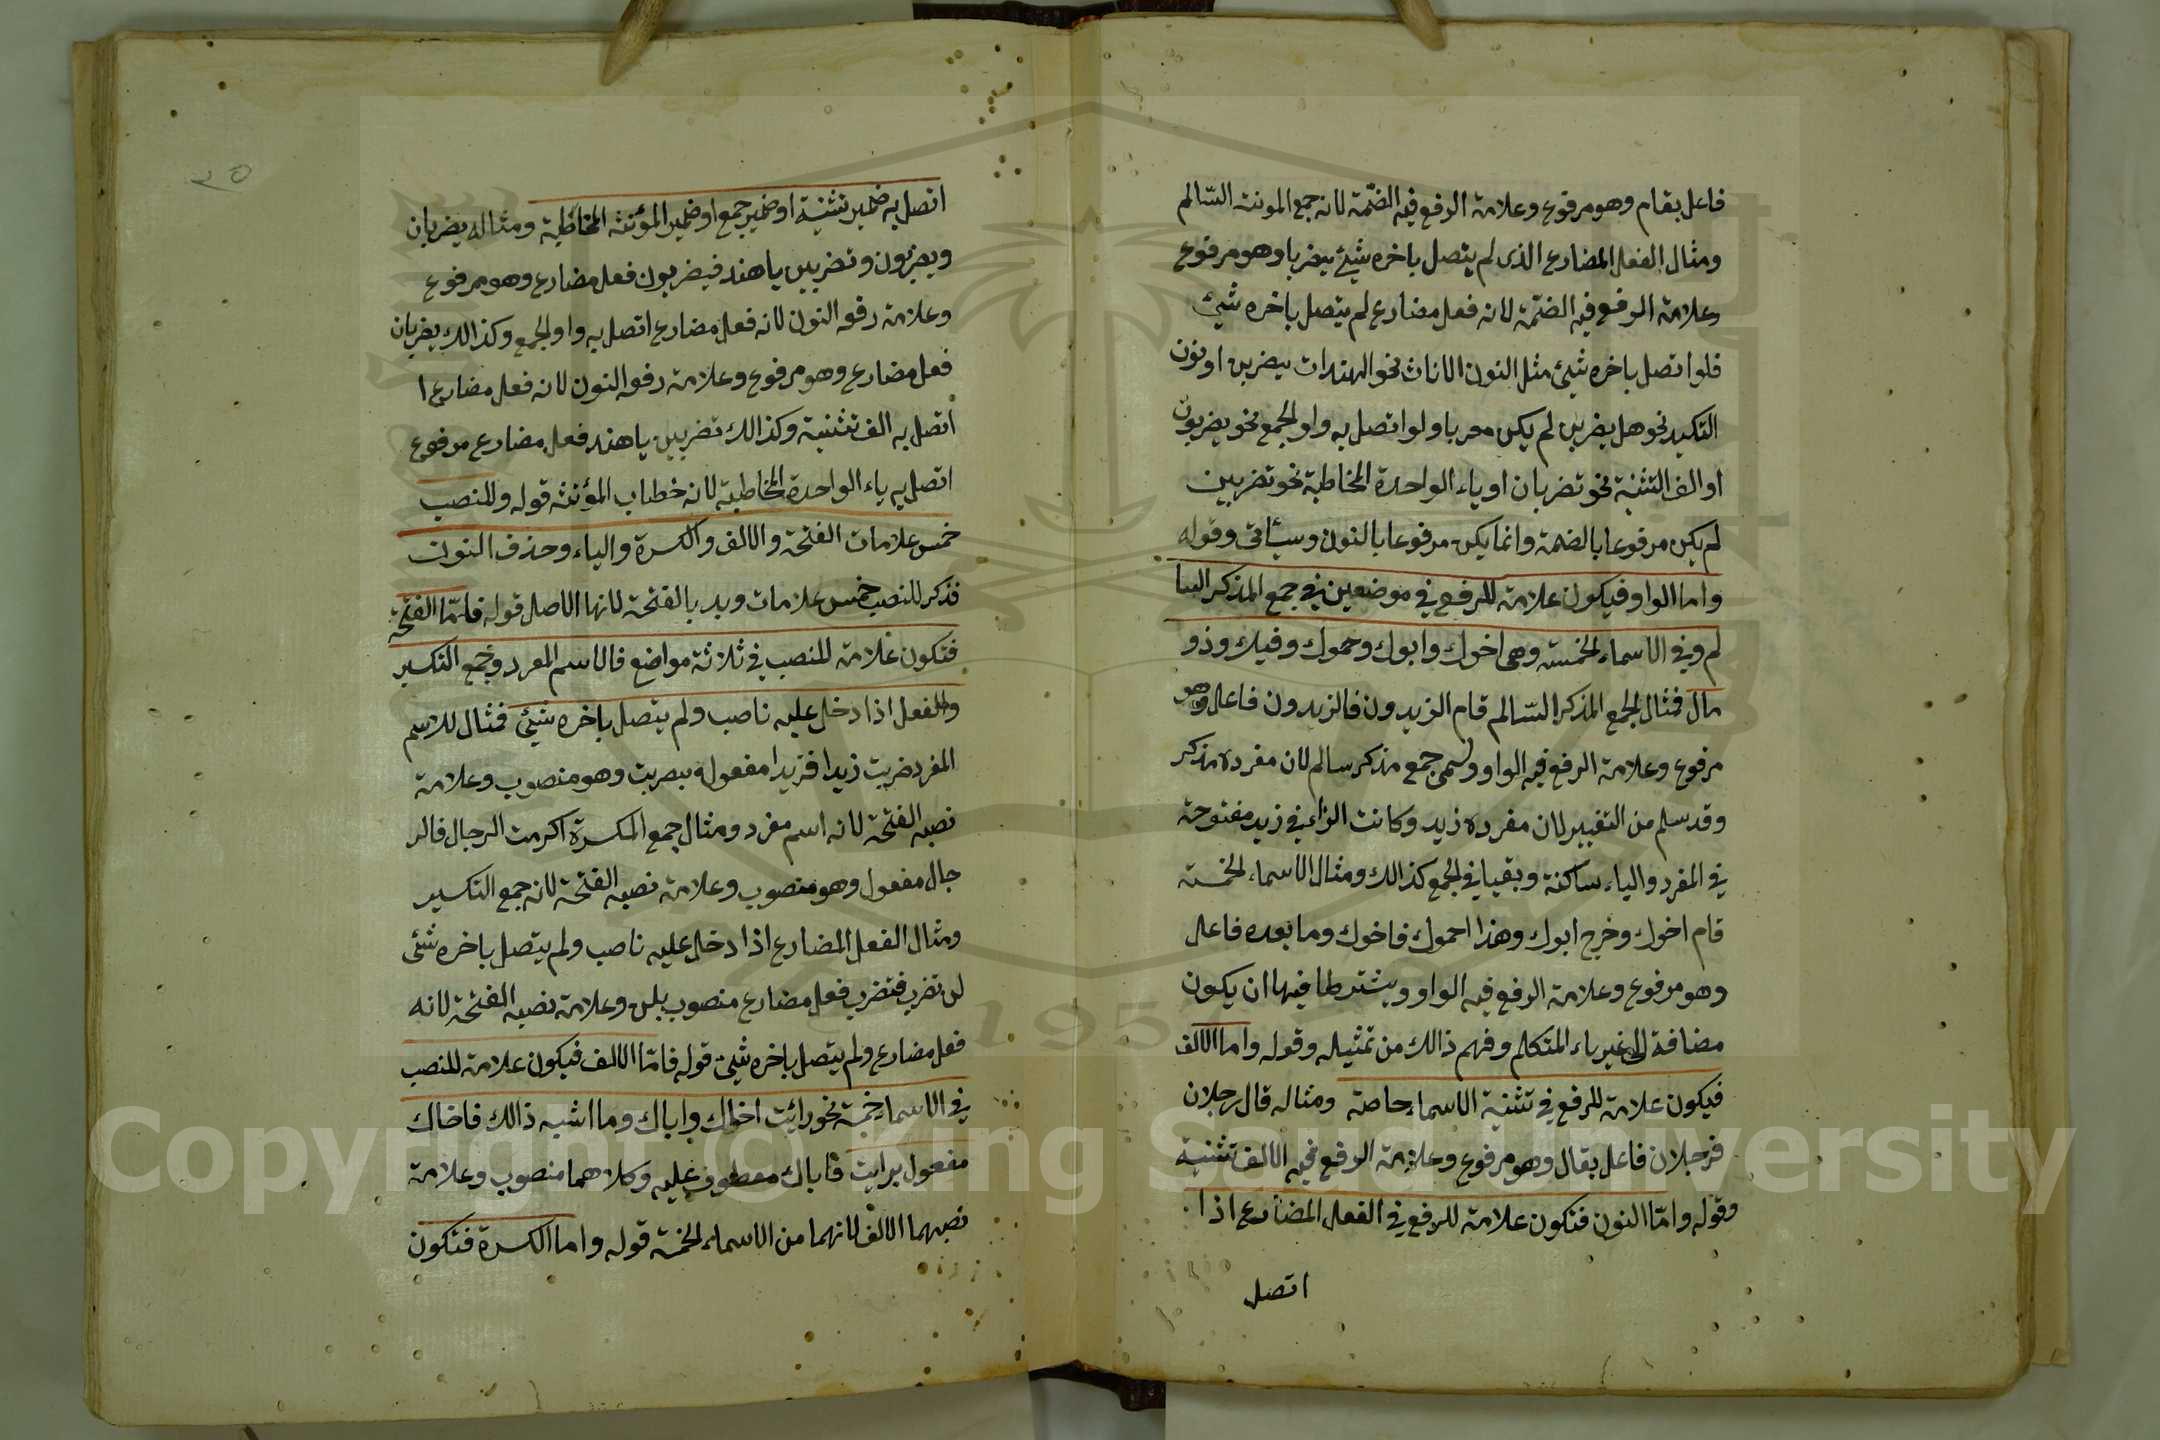 فاعل بقام وهو مرفوع وعلامة الرفع فيه الضّمة لانه جمع المونث السّالم
ومثال الفعل المضارع الذى لم يتصل باخره شيئ يضرب وهو مرفوع
وعلامة الرفع فيه الضمّة لانه فعل مضارع لم يتصل باخره شيئ
فلوا تصل باخره شيئ مثل النون الاناث نحو الهندات يضربن او نون
التكيد نحو هل يضربن لم يكن معربا ولو اتصل به واو الجمع نحو يضربون
او الف التثنية نحو تضربان او ياء الواحدة المخاطبة نحو تضربين
لم يكن مرفوعا بالضمة وانما يكن مرفوعا بالنون وسيأتى وقوله
واما الواو فيكون علامة للرفع في موضعين في جمع المذكر السا
لم وفي الاسماء الخمسة وهى اخوك وابوك وحموك وفيك وذو
مال فمثال الجمع المذكر السّالم قام الزيدون فالزيدون فاعل وهو
مرفوع وعلامة الرفع فيه الواو وسمى جمع مذكر سالم لان مفرده مذكر
وقد سلم من التغيير لان مفرده زيد وكانت الزاء في زيد مفتوحة
في المفرد والياء ساكنة وبقيا في الجمع كذالك ومثال الاسماء الخمسة
قام اخوك وخرج ابوك وهذا احموك فاخوك وما بعده فاعل
وهو مرفوع وعلامة الرفع فيه الواو ويشترطا فيها ان يكون
مضافة الى غير ياء المتكلم وفهم ذالك من تمثيله وقوله واما الالف
فيكون علامة للرفع في تثنية الاسماء خاصة ومثاله قال رجلان
فرجلان فاعل بقال وهو مرفوع وعلامة الرفع فيه الالف تثنية
وقوله وامّا النون فتكون علامة للرفع في الفعل المضارع اذا
اتصل
٢٥
اتصل به ضمير تثنية او ضمير جمع او ضمير المؤنثه المخاطبة ومثاله يضربان
ويضربون وتضربين ياهند فيضربون فعل مضارع وهو مرفوع
وعلامة رفعه النون لانه فعل مضارع اتصل به واو الجمع وكذالك يضربان
فعل مضارع وهو مرفوع وعلامة رفعه النون لانه فعل مضارع ا
اتصل به الف تثنية وكذالك تضربين ياهند فعل مضارع مرفوع
اتصل به ياء الواحدة المخاطبة لانه خطاب المؤنثه قوله وللنصب
خمس علامات الفتحة والالف والكسرة والياء وحذف النون
فذكر للنصب خمس علامات وبد بالفتحة لانها الاصل قوله فامّا الفتحة
فتكون علامة للنصب في ثلاثة مواضع فالاسم المفرد وجمع التكسير
والفعل اذا دخل عليه ناصب ولم يتصل باخره شيئ فمثال للاسم
المفرد ضربت زيدا فزيدا مفعوله بضربت وهو منصوب وعلامة
نصبه الفتحة لانه اسم مفرد ومثال جمع المكسرة اكرمت الرجال فالر
جال مفعول وهو منصوب وعلامة نصبه الفتحة لانه جمع التكسير
ومثال الفعل المضارع اذا دخل عليه ناصب ولم يتصل باخره شئى
لن تضرب فتضرب فعل مضارع منصوب بلن وعلامة نصبه الفتحة لانه
فعل مضارع ولم يتصل باخره شيئ قوله فامّا الالف فيكون علامة للنصب
في الاسماء خمسة نحو رائت اخاك واباك وما اشبه ذالك فاخاك
مفعول برايت فاباك معطوف عليه وكلاهما منصوب وعلامة
نصبهما الالف لانهما من الاسماء الخمسة قوله واما الكسرة فتكون
1957
Copyright © King Saud University